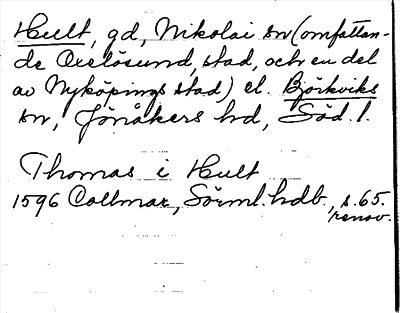 Hult, gd, Nikolai sn (omfattan-
de Oxelösund, stad, och en del
av Nyköpings stad) el. Björkviks
sn, Jönåkers hd, Söd. l.
Thomas i Hult
1596 Collmar, Sörml. hdb., s. 65.
renov.